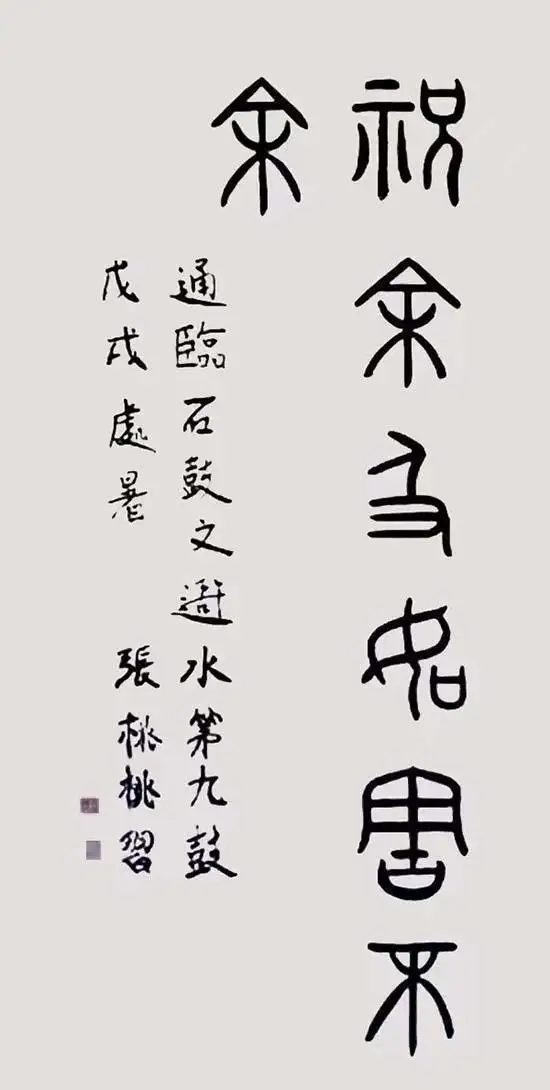 祝余及如害不
余
通臨石鼓文水第九鼓
戊戌處暑 張桃桃習